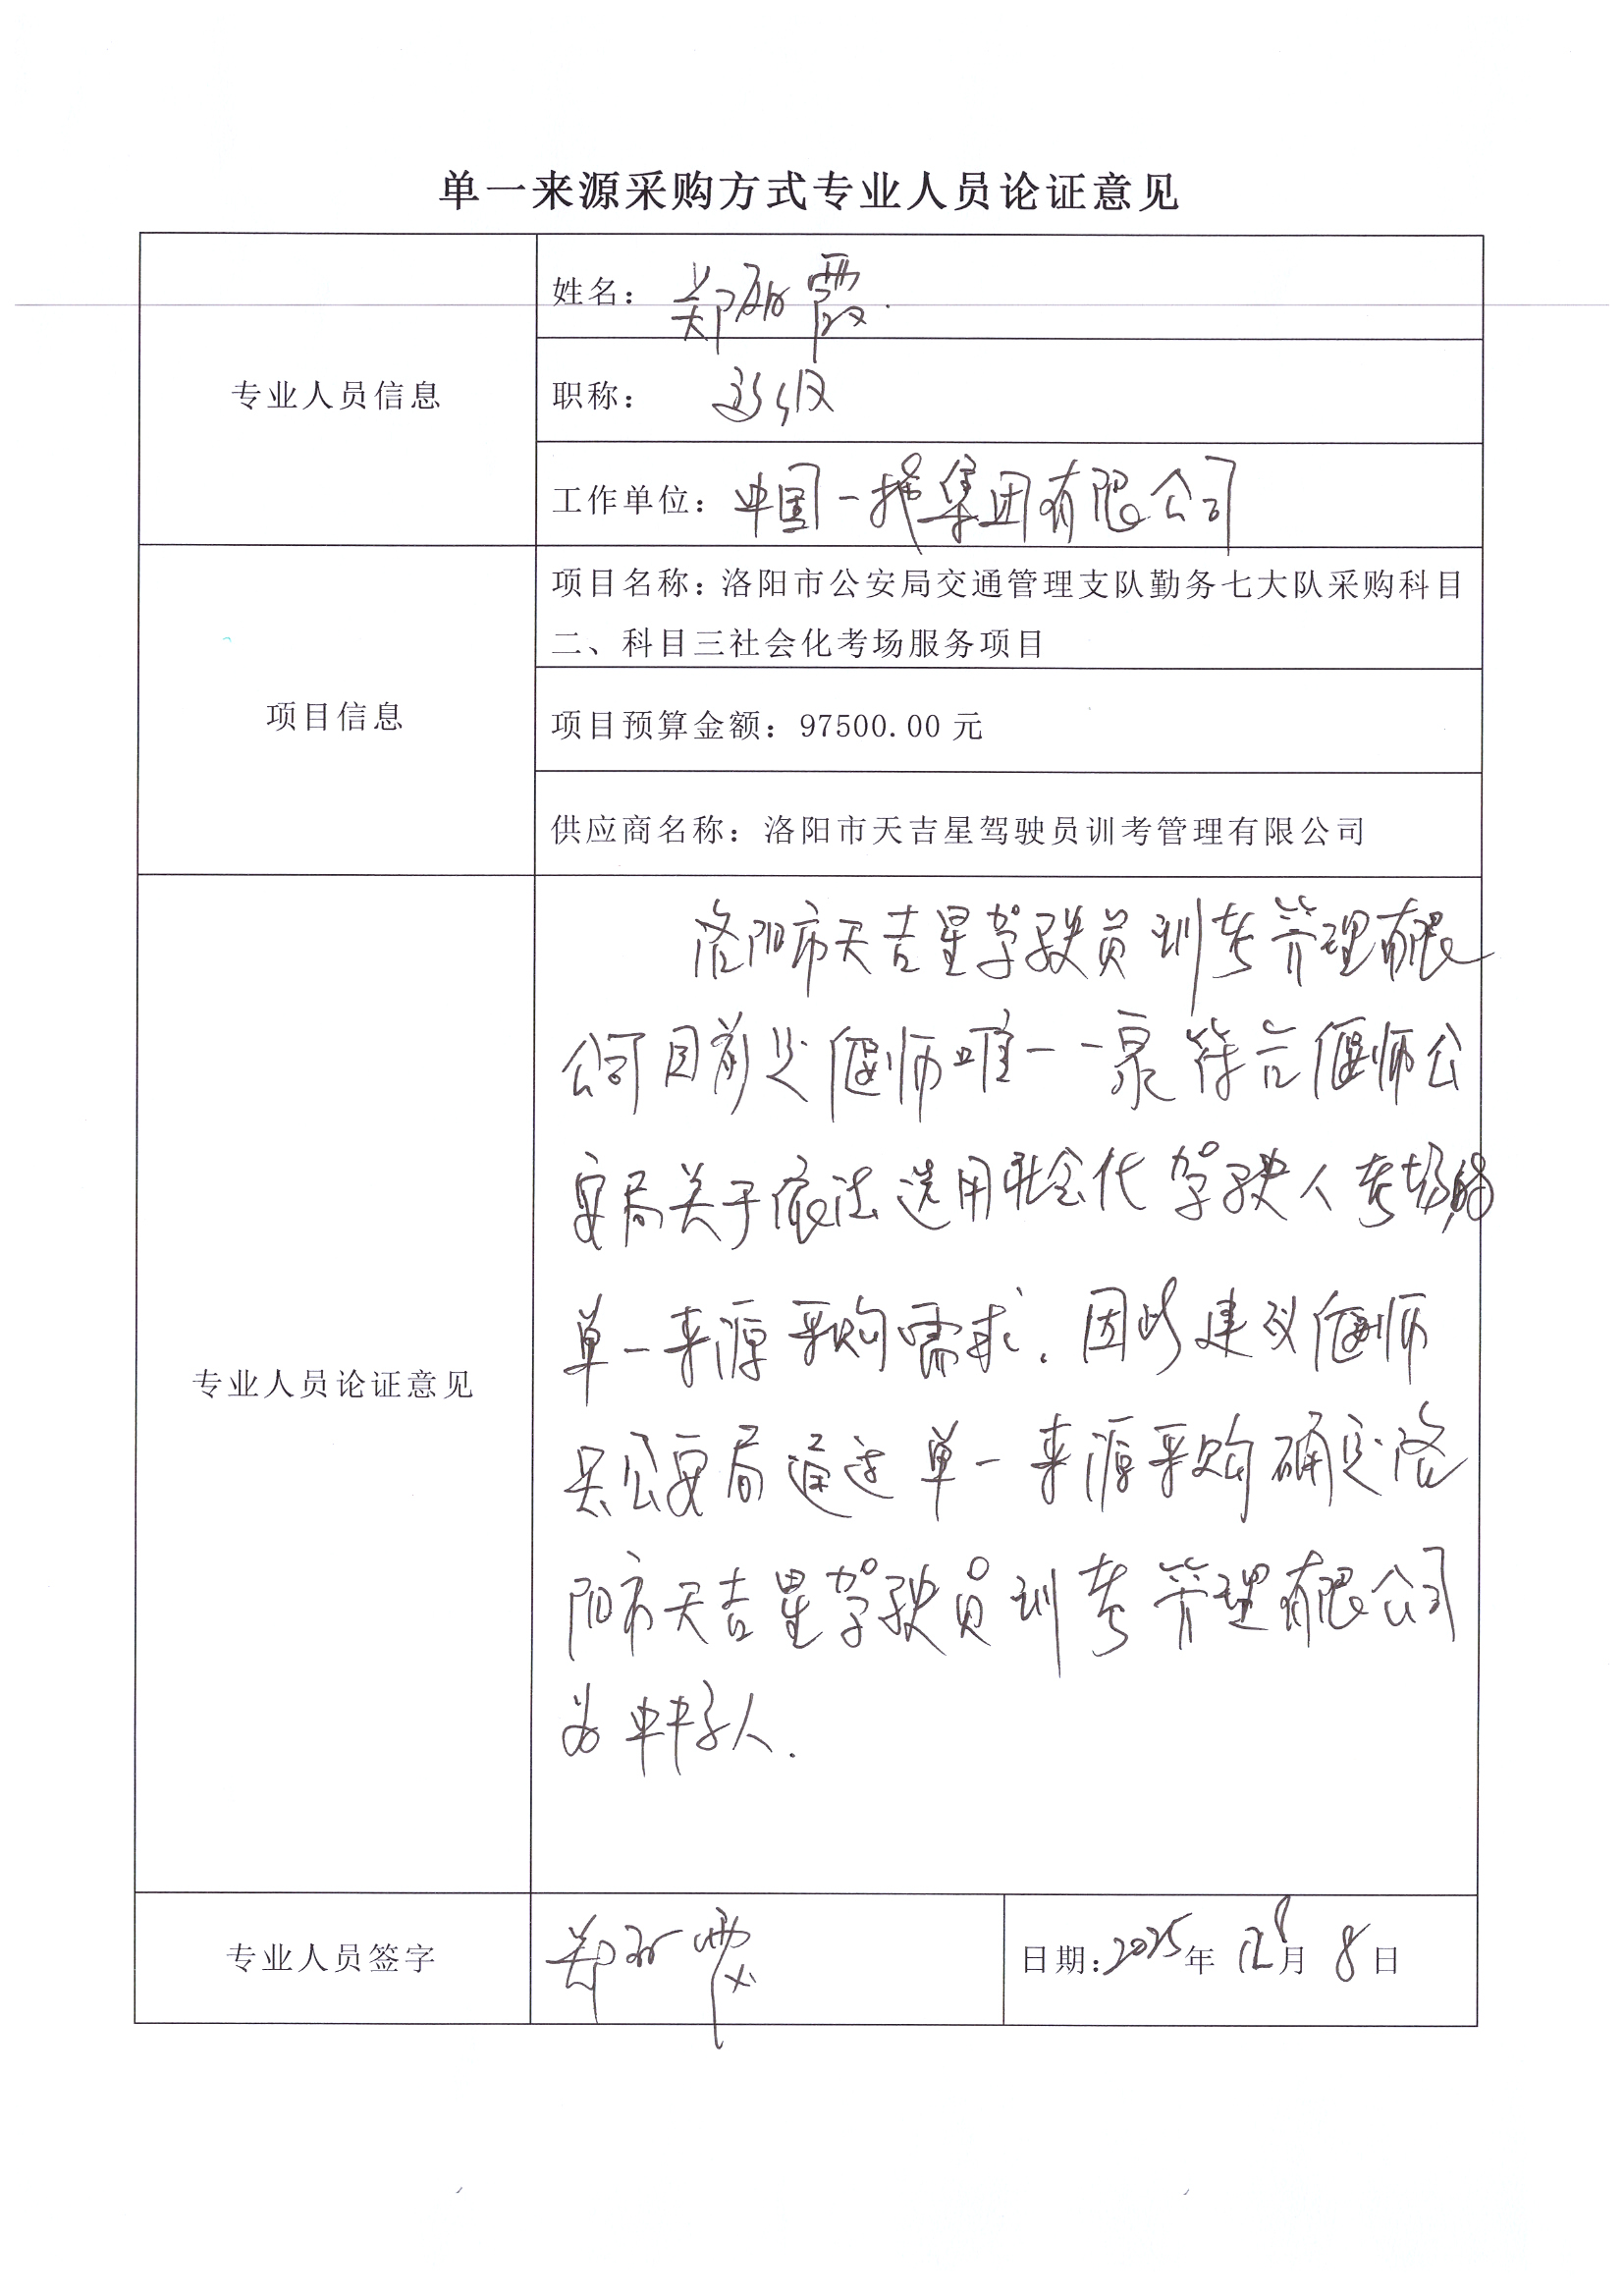 单一来源采购方式专业人员论证意见
专业人员信息
姓名：郑 霞
职称：高级
工作单位：中国一拖集团有限公司
项目信息
项目名称：洛阳市公安局交通管理支队勤务七大队采购科目
二、科目三社会化考场服务项目
项目预算金额：97500.00 元
供应商名称：洛阳市天吉星驾驶员训考管理有限公司
专业人员论证意见
洛阳市天吉星驾驶员训考管理有限
公司目前是偃师唯一一家符合偃师公
安局关于依法选用社会化驾驶人考场的
单一来源采购需求.因此建议偃师
公安局通过单一来源采购确定洛
阳市天吉星驾驶员训考管理有限公司
为 人.
专业人员签字
郑 霞
日期：2025年 月 8日